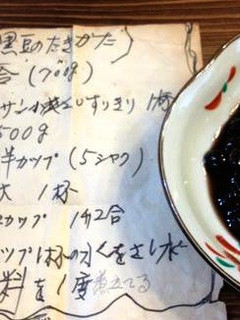 黒豆のたきかた)
合 (700g)
サン小さじすりきり 1杯
500g
半カップ (5シャク)
大 1杯
カップ 1カ2合
ップ1杯の水くをさし水
料を1度煮立てる